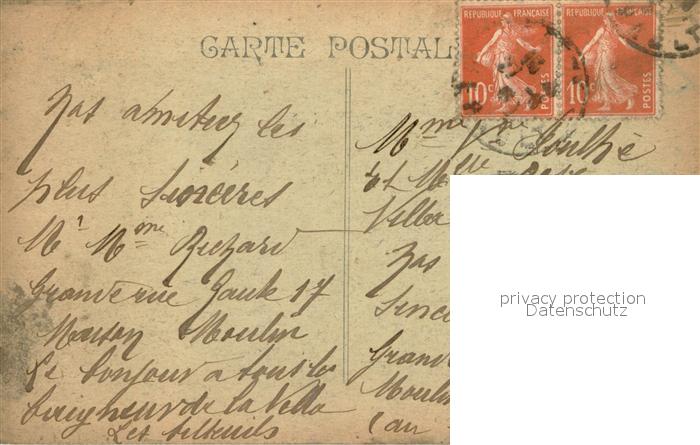 CARTE POSTAL
REPUBLIQUE FRANÇAISE
10c POSTES
REPUBLIQUE FRANÇAISE
10c POSTES
Nos amitiez les
plus Sincères
Mr Mme Richard
Grande rue 17
Maison Moulin
le bonjour a tous les
de la Vella
Les
Mme
et Mlle
Villa
Nos
Sincè
Grand
Moulin
(au
privacy protection
Datenschutz